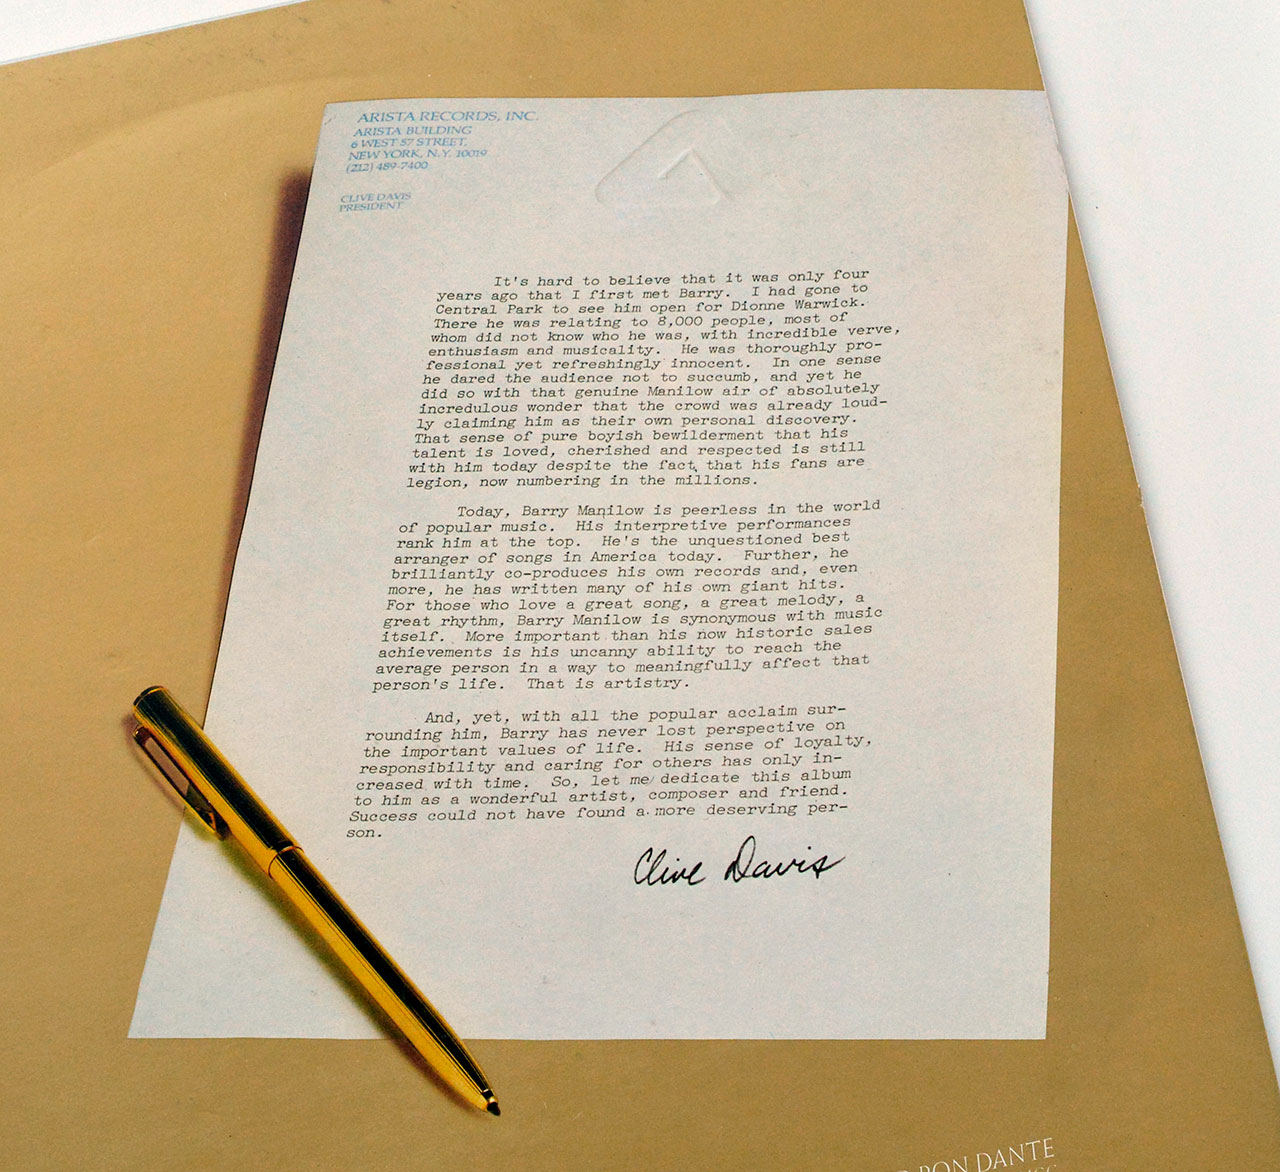 ARISTA RECORDS, INC.
ARISTA BUILDING
6 WEST 57 STREET,
NEW YORK, N.Y. 10019
(212) 489-7400
CLIVE DAVIS
PRESIDENT
It's hard to believe that it was only four
years ago that I first met Barry. I had gone to
Central Park to see him open for Dionne Warwick.
There he was relating to 8,000 people, most of
whom did not know who he was, with incredible verve,
enthusiasm and musicality. He was thoroughly pro-
fessional yet refreshingly innocent. In one sense
he dared the audience not to succumb, and yet he
did so with that genuine Manilow air of absolutely
incredulous wonder that the crowd was already loud-
ly claiming him as their own personal discovery.
That sense of pure boyish bewilderment that his
talent is loved, cherished and respected is still
with him today despite the fact that his fans are
legion, now numbering in the millions.
Today, Barry Manilow is peerless in the world
of popular music. His interpretive performances
rank him at the top. He's the unquestioned best
arranger of songs in America today. Further, he
brilliantly co-produces his own records and, even
more, he has written many of his own giant hits.
For those who love a great song, a great melody, a
great rhythm, Barry Manilow is synonymous with music
itself. More important than his now historic sales
achievements is his uncanny ability to reach the
average person in a way to meaningfully affect that
person's life. That is artistry.
And, yet, with all the popular acclaim sur-
rounding him, Barry has never lost perspective on
the important values of life. His sense of loyalty,
responsibility and caring for others has only in-
creased with time. So, let me dedicate this album
to him as a wonderful artist, composer and friend.
Success could not have found a more deserving per-
son.
Clive Davis
RON DANTE